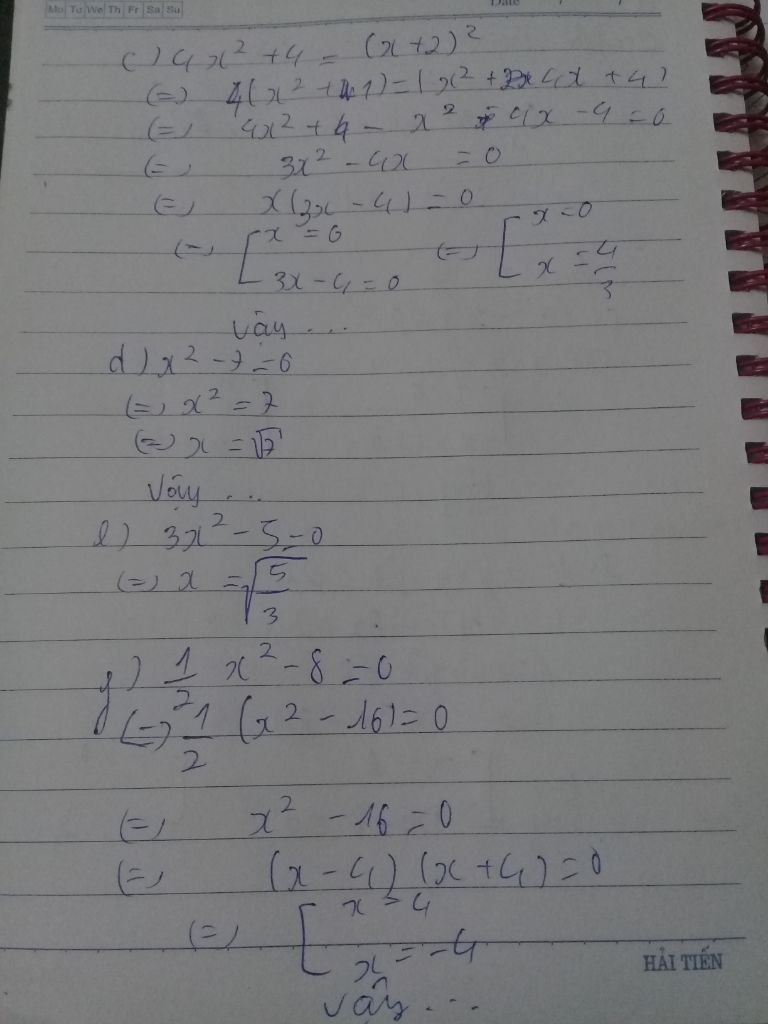 Mo Tu We Th Fr Sa Su
Date
c) 4x² + 4 = (x+2)²
(=) 4(x² + 1) = (x² + 4x + 4)
(=) 4x² + 4 - x² - 4x - 4 = 0
(=) 3x² - 4x = 0
(=) x(3x - 4) = 0
(=) [ x = 0 (=) [ x = 0
3x - 4 = 0 x = 4/3
Vậy ...
d) x² - 7 = 0
(=) x² = 7
(=) x = √7
Vậy ...
e) 3x² - 5 = 0
(=) x = √(5/3)
g) 1/2 x² - 8 = 0
(=) 1/2 (x² - 16) = 0
(=) x² - 16 = 0
(=) (x - 4) (x + 4) = 0
(=) [ x = 4
x = -4
HẢI TIẾN
Vậy ...